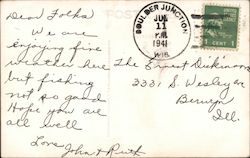 Dear Folks
We are
enjoying fine
weather here
but fishing
not so good
Hope you are
all well
Love
John & Ruth
BOULDER JUNCTION
JUL
11
P.M.
1941
WIS.
1 CENT 1
The Ernest Dickinsons
3331 S. Wesley Av
Berwyn
Ill.